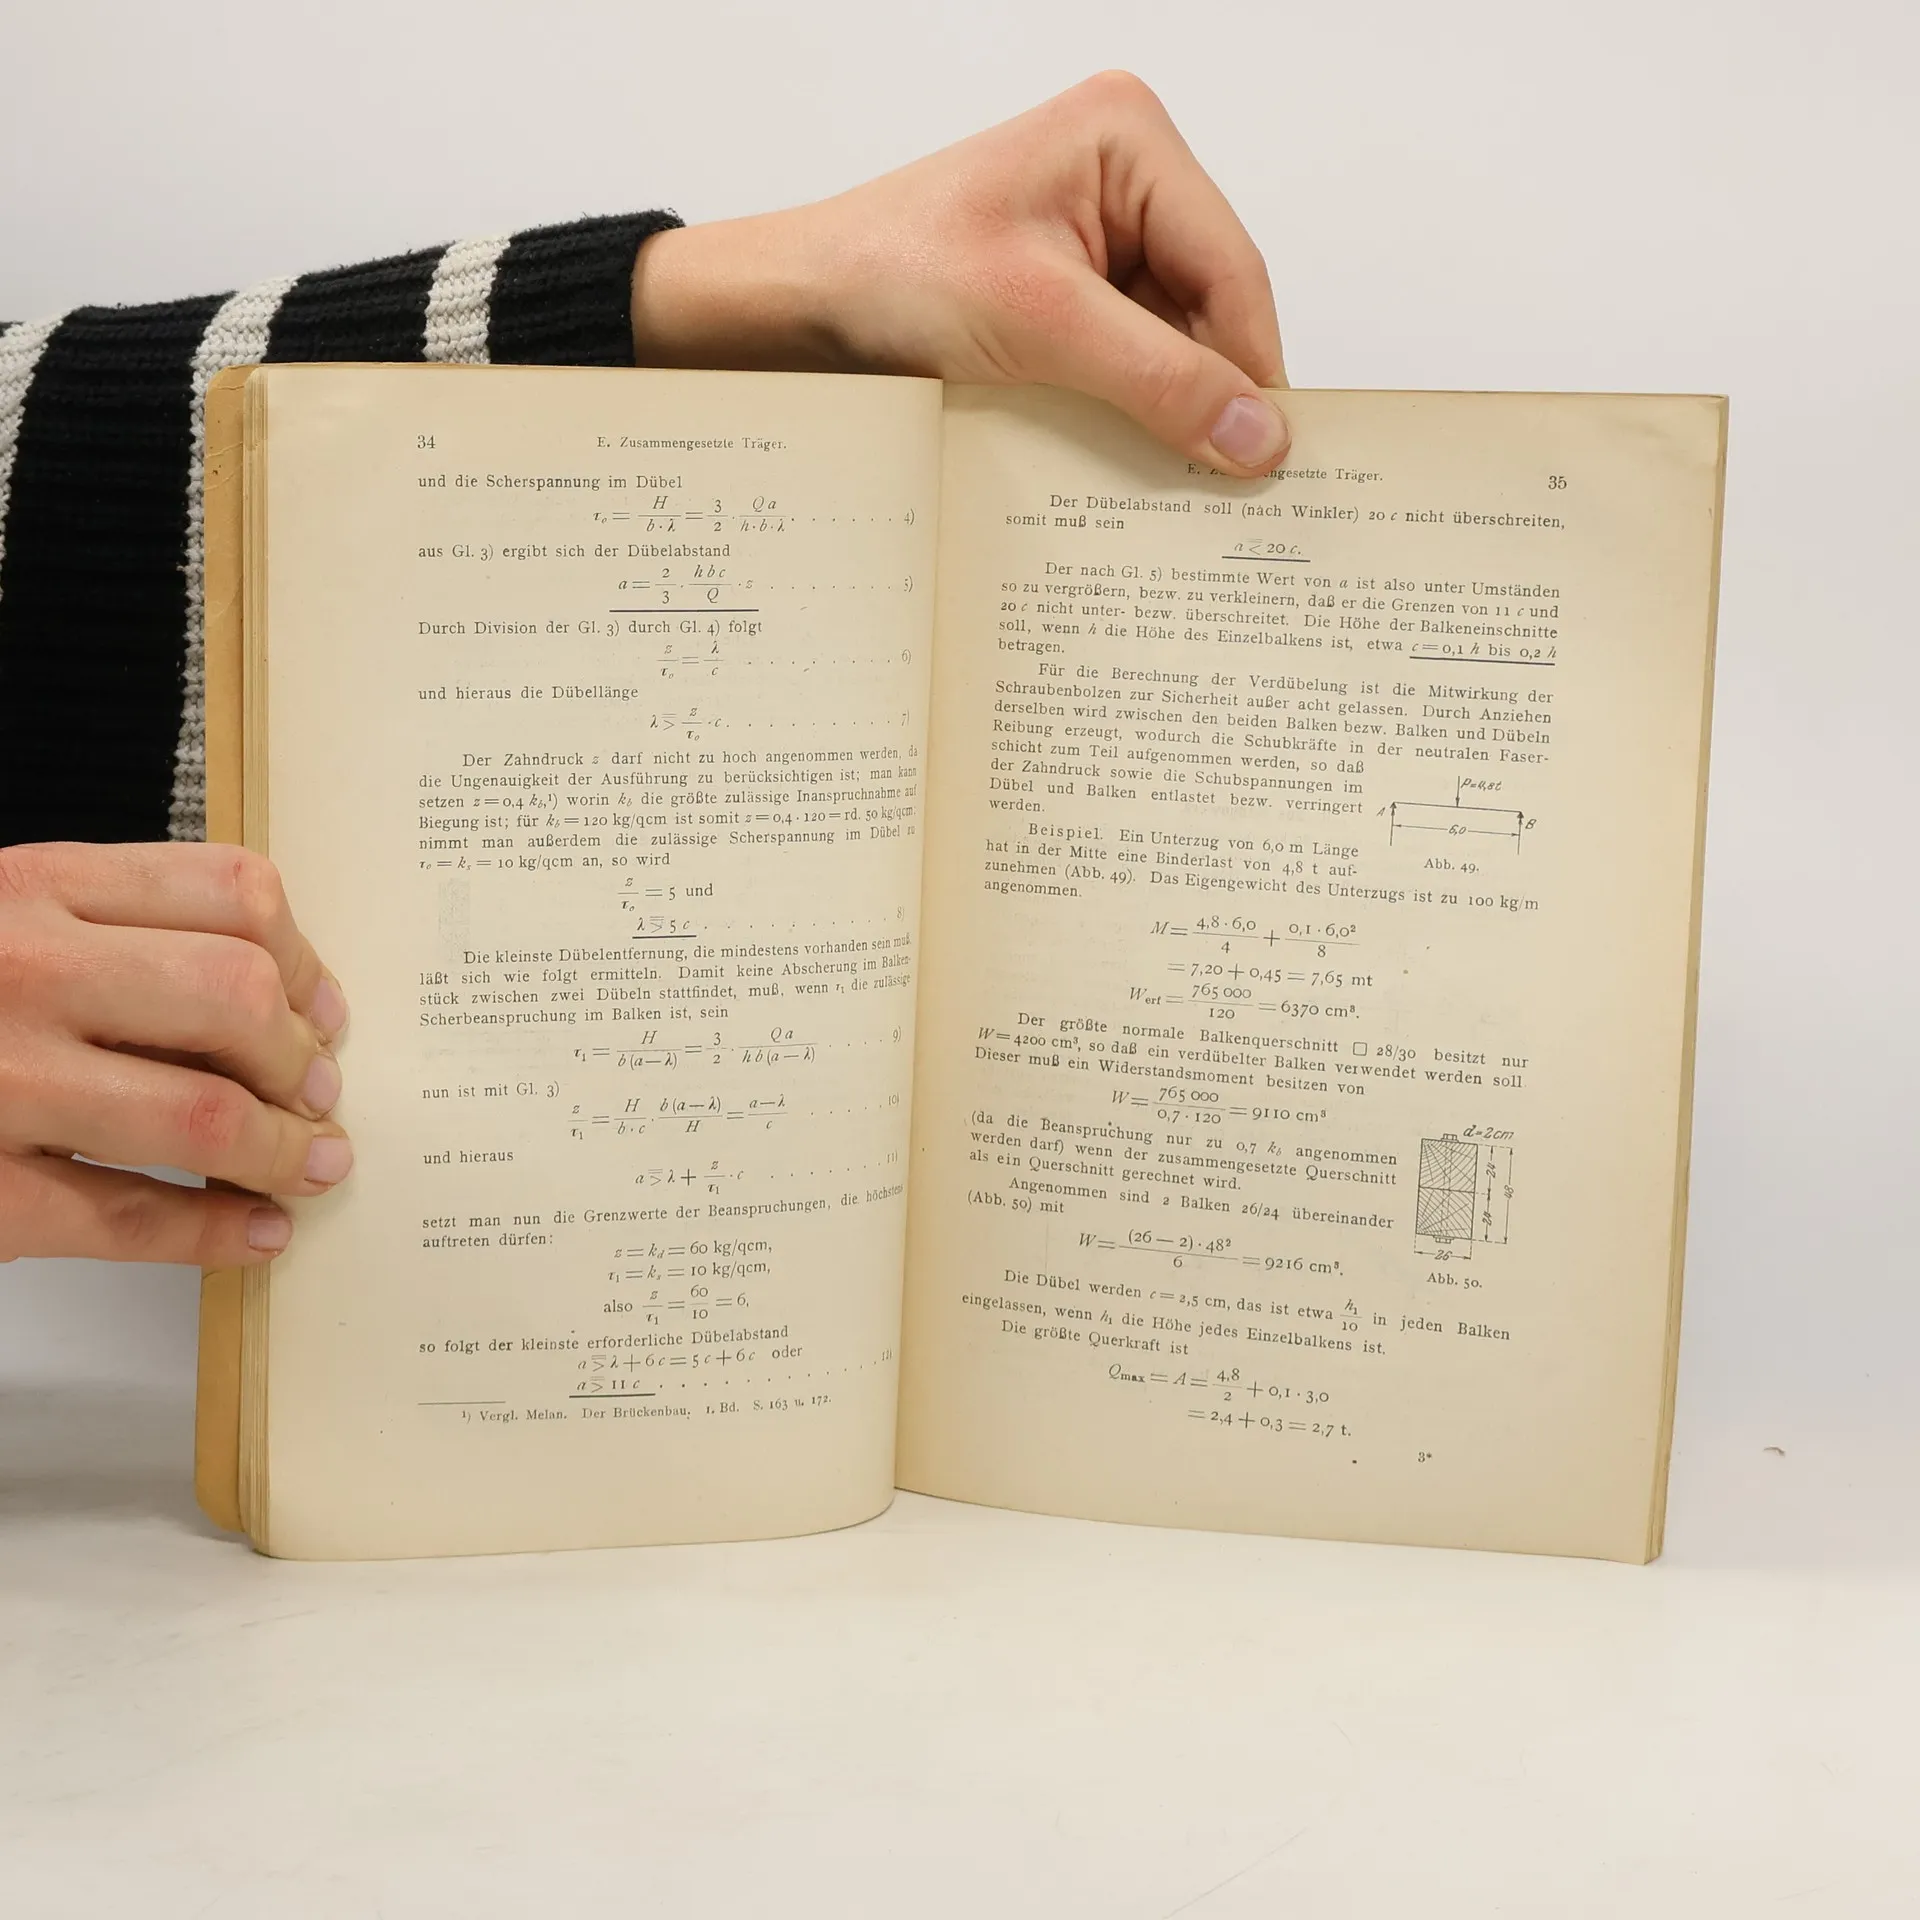 34 E. Zusammengesetzte Träger.
und die Scherspannung im Dübel
τₒ = H / b·λ = 3/2 · Q a / h·b·λ . . . . . . 4)
aus Gl. 3) ergibt sich der Dübelabstand
a = 2/3 · h b c / Q · z . . . . . . . 5)
Durch Division der Gl. 3) durch Gl. 4) folgt
z/τₒ = λ/c . . . . . . . . 6)
und hieraus die Dübellänge
λ ⋝ z/τₒ · c . . . . . . . . . 7)
Der Zahndruck z darf nicht zu hoch angenommen werden, da
die Ungenauigkeit der Ausführung zu berücksichtigen ist; man kann
setzen z = 0,4 k_b,¹) worin k_b die größte zulässige Inanspruchnahme auf
Biegung ist; für k_b = 120 kg/qcm ist somit z = 0,4 · 120 = rd. 50 kg/qcm;
nimmt man außerdem die zulässige Scherspannung im Dübel zu
τₒ = k_s = 10 kg/qcm an, so wird
z/τₒ = 5 und
λ ⋝ 5 c . . . . . . . . . 8)
Die kleinste Dübelentfernung, die mindestens vorhanden sein muß,
läßt sich wie folgt ermitteln. Damit keine Abscherung im Balken-
stück zwischen zwei Dübeln stattfindet, muß, wenn τ₁ die zulässige
Scherbeanspruchung im Balken ist, sein
τ₁ = H / b (a — λ) = 3/2 · Q a / h b (a — λ) . . . . 9)
nun ist mit Gl. 3)
z/τ₁ = H / b·c · b (a — λ) / H = a — λ / c . . . . . 10)
und hieraus
a ⋝ λ + z/τ₁ · c . . . . . . 11)
setzt man nun die Grenzwerte der Beanspruchungen, die höchstens
auftreten dürfen:
z = k_d = 60 kg/qcm,
τ₁ = k_s = 10 kg/qcm,
also z/τ₁ = 60/10 = 6,
so folgt der kleinste erforderliche Dübelabstand
a ⋝ λ + 6 c = 5 c + 6 c oder
a ⋝ 11 c . . . . . . . . . . . 12)
¹) Vergl. Melan. Der Brückenbau. 1. Bd. S. 163 u. 172.
E. gesetzte Träger. 35
Der Dübelabstand soll (nach Winkler) 20 c nicht überschreiten,
somit muß sein
a ⋜ 20 c.
Der nach Gl. 5) bestimmte Wert von a ist also unter Umständen
so zu vergrößern, bezw. zu verkleinern, daß er die Grenzen von 11 c und
20 c nicht unter- bezw. überschreitet. Die Höhe der Balkeneinschnitte
soll, wenn h die Höhe des Einzelbalkens ist, etwa c = 0,1 h bis 0,2 h
betragen.
Für die Berechnung der Verdübelung ist die Mitwirkung der
Schraubenbolzen zur Sicherheit außer acht gelassen. Durch Anziehen
derselben wird zwischen den beiden Balken bezw. Balken und Dübeln
Reibung erzeugt, wodurch die Schubkräfte in der neutralen Faser-
schicht zum Teil aufgenommen werden, so daß
der Zahndruck sowie die Schubspannungen im
Dübel und Balken entlastet bezw. verringert
werden.
P=4,8t
A
B
6,0
Abb. 49.
Beispiel. Ein Unterzug von 6,0 m Länge
hat in der Mitte eine Binderlast von 4,8 t auf-
zunehmen (Abb. 49). Das Eigengewicht des Unterzugs ist zu 100 kg/m
angenommen.
M = 4,8 · 6,0 / 4 + 0,1 · 6,0² / 8
= 7,20 + 0,45 = 7,65 mt
W_erf = 765 000 / 120 = 6370 cm³.
Der größte normale Balkenquerschnitt □ 28/30 besitzt nur
W = 4200 cm³, so daß ein verdübelter Balken verwendet werden soll.
Dieser muß ein Widerstandsmoment besitzen von
W = 765 000 / 0,7 · 120 = 9110 cm³
(da die Beanspruchung nur zu 0,7 k_b angenommen
werden darf) wenn der zusammengesetzte Querschnitt
als ein Querschnitt gerechnet wird.
Angenommen sind 2 Balken 26/24 übereinander
(Abb. 50) mit
W = (26 — 2) · 48² / 6 = 9216 cm³.
d=2cm
24
24
48
26
Abb. 50.
Die Dübel werden c = 2,5 cm, das ist etwa h₁/10 in jeden Balken
eingelassen, wenn h₁ die Höhe jedes Einzelbalkens ist.
Die größte Querkraft ist
Q_max = A = 4,8 / 2 + 0,1 · 3,0
= 2,4 + 0,3 = 2,7 t.
3*